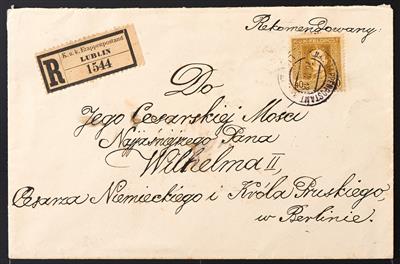 Rekomendowany.
K.u.k. Etappenpostamt
LUBLIN
R
1544
K.U.K. FELDPOST
Do
Jego Cesarskiej Mości
Najjaśniejszego Pana
Wilhelma II,
Cesarza Niemieckiego i Króla Pruskiego,
w Berlinie.